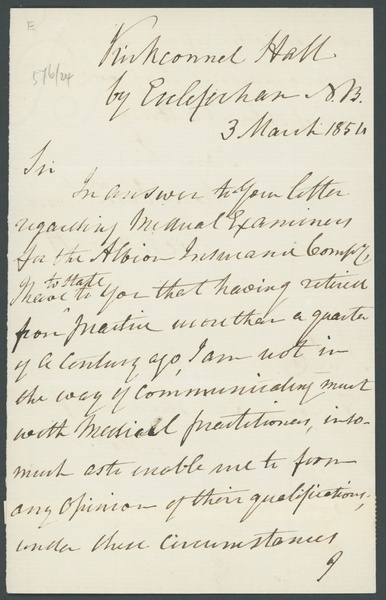 E
576/24
Kirkconnel Hall
by Ecclefechan N.B.
3 March 1854
Sir
In answer to your letter
regarding Medical Examiners
for the Albion Insurance Compy,
I have to state
to you that having retired
from practice more than a quarter
of a Century ago, I am not in
the way of communicating much
with Medical practitioners, inso-
much as to enable me to form
any opinion of their qualifications,
under these circumstances
I